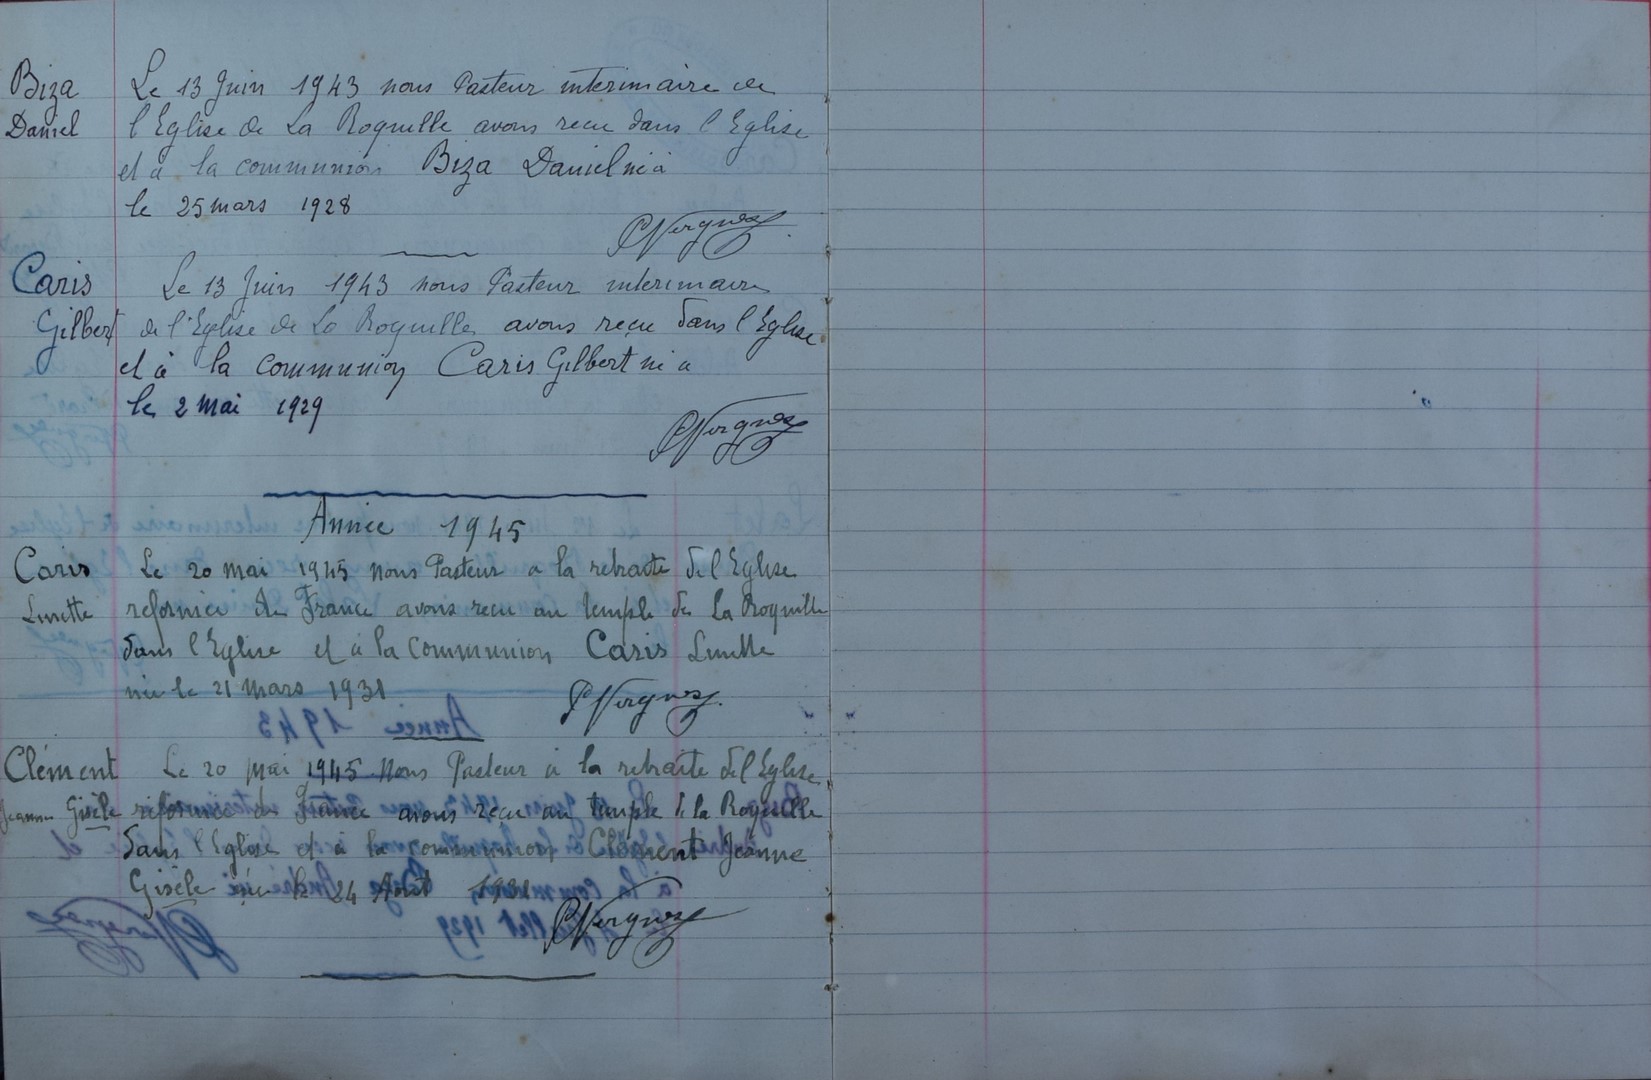 Biza
Daniel
Le 13 Juin 1943 nous Pasteur interimaire de
l'Eglise de La Roquille avons recu dans l'Eglise
et à la communion Biza Daniel né à
le 25 mars 1928
PVergnes
Caris
Gilbert
Le 13 Juin 1943 nous Pasteur interimaire
de l'Eglise de La Roquille avons reçu dans l'Eglise
et à la communion Caris Gilbert né à
le 2 Mai 1929
PVergnes
Année 1945
Caris
Linette
Le 20 mai 1945 nous Pasteur a la retraite de l'Eglise
reformée de France avons recu au temple de La Roquille
dans l'Eglise et à la communion Caris Linette
née le 21 mars 1931
PVergnes
Clément
Jeanne Gisèle
Le 20 mai 1945 Nous Pasteur à la retraite de l'Eglise
reformée de France avons reçu au temple de la Roquille
dans l'Eglise et à la communion Clément Jeanne
Gisèle née le 24 Août
PVergnes